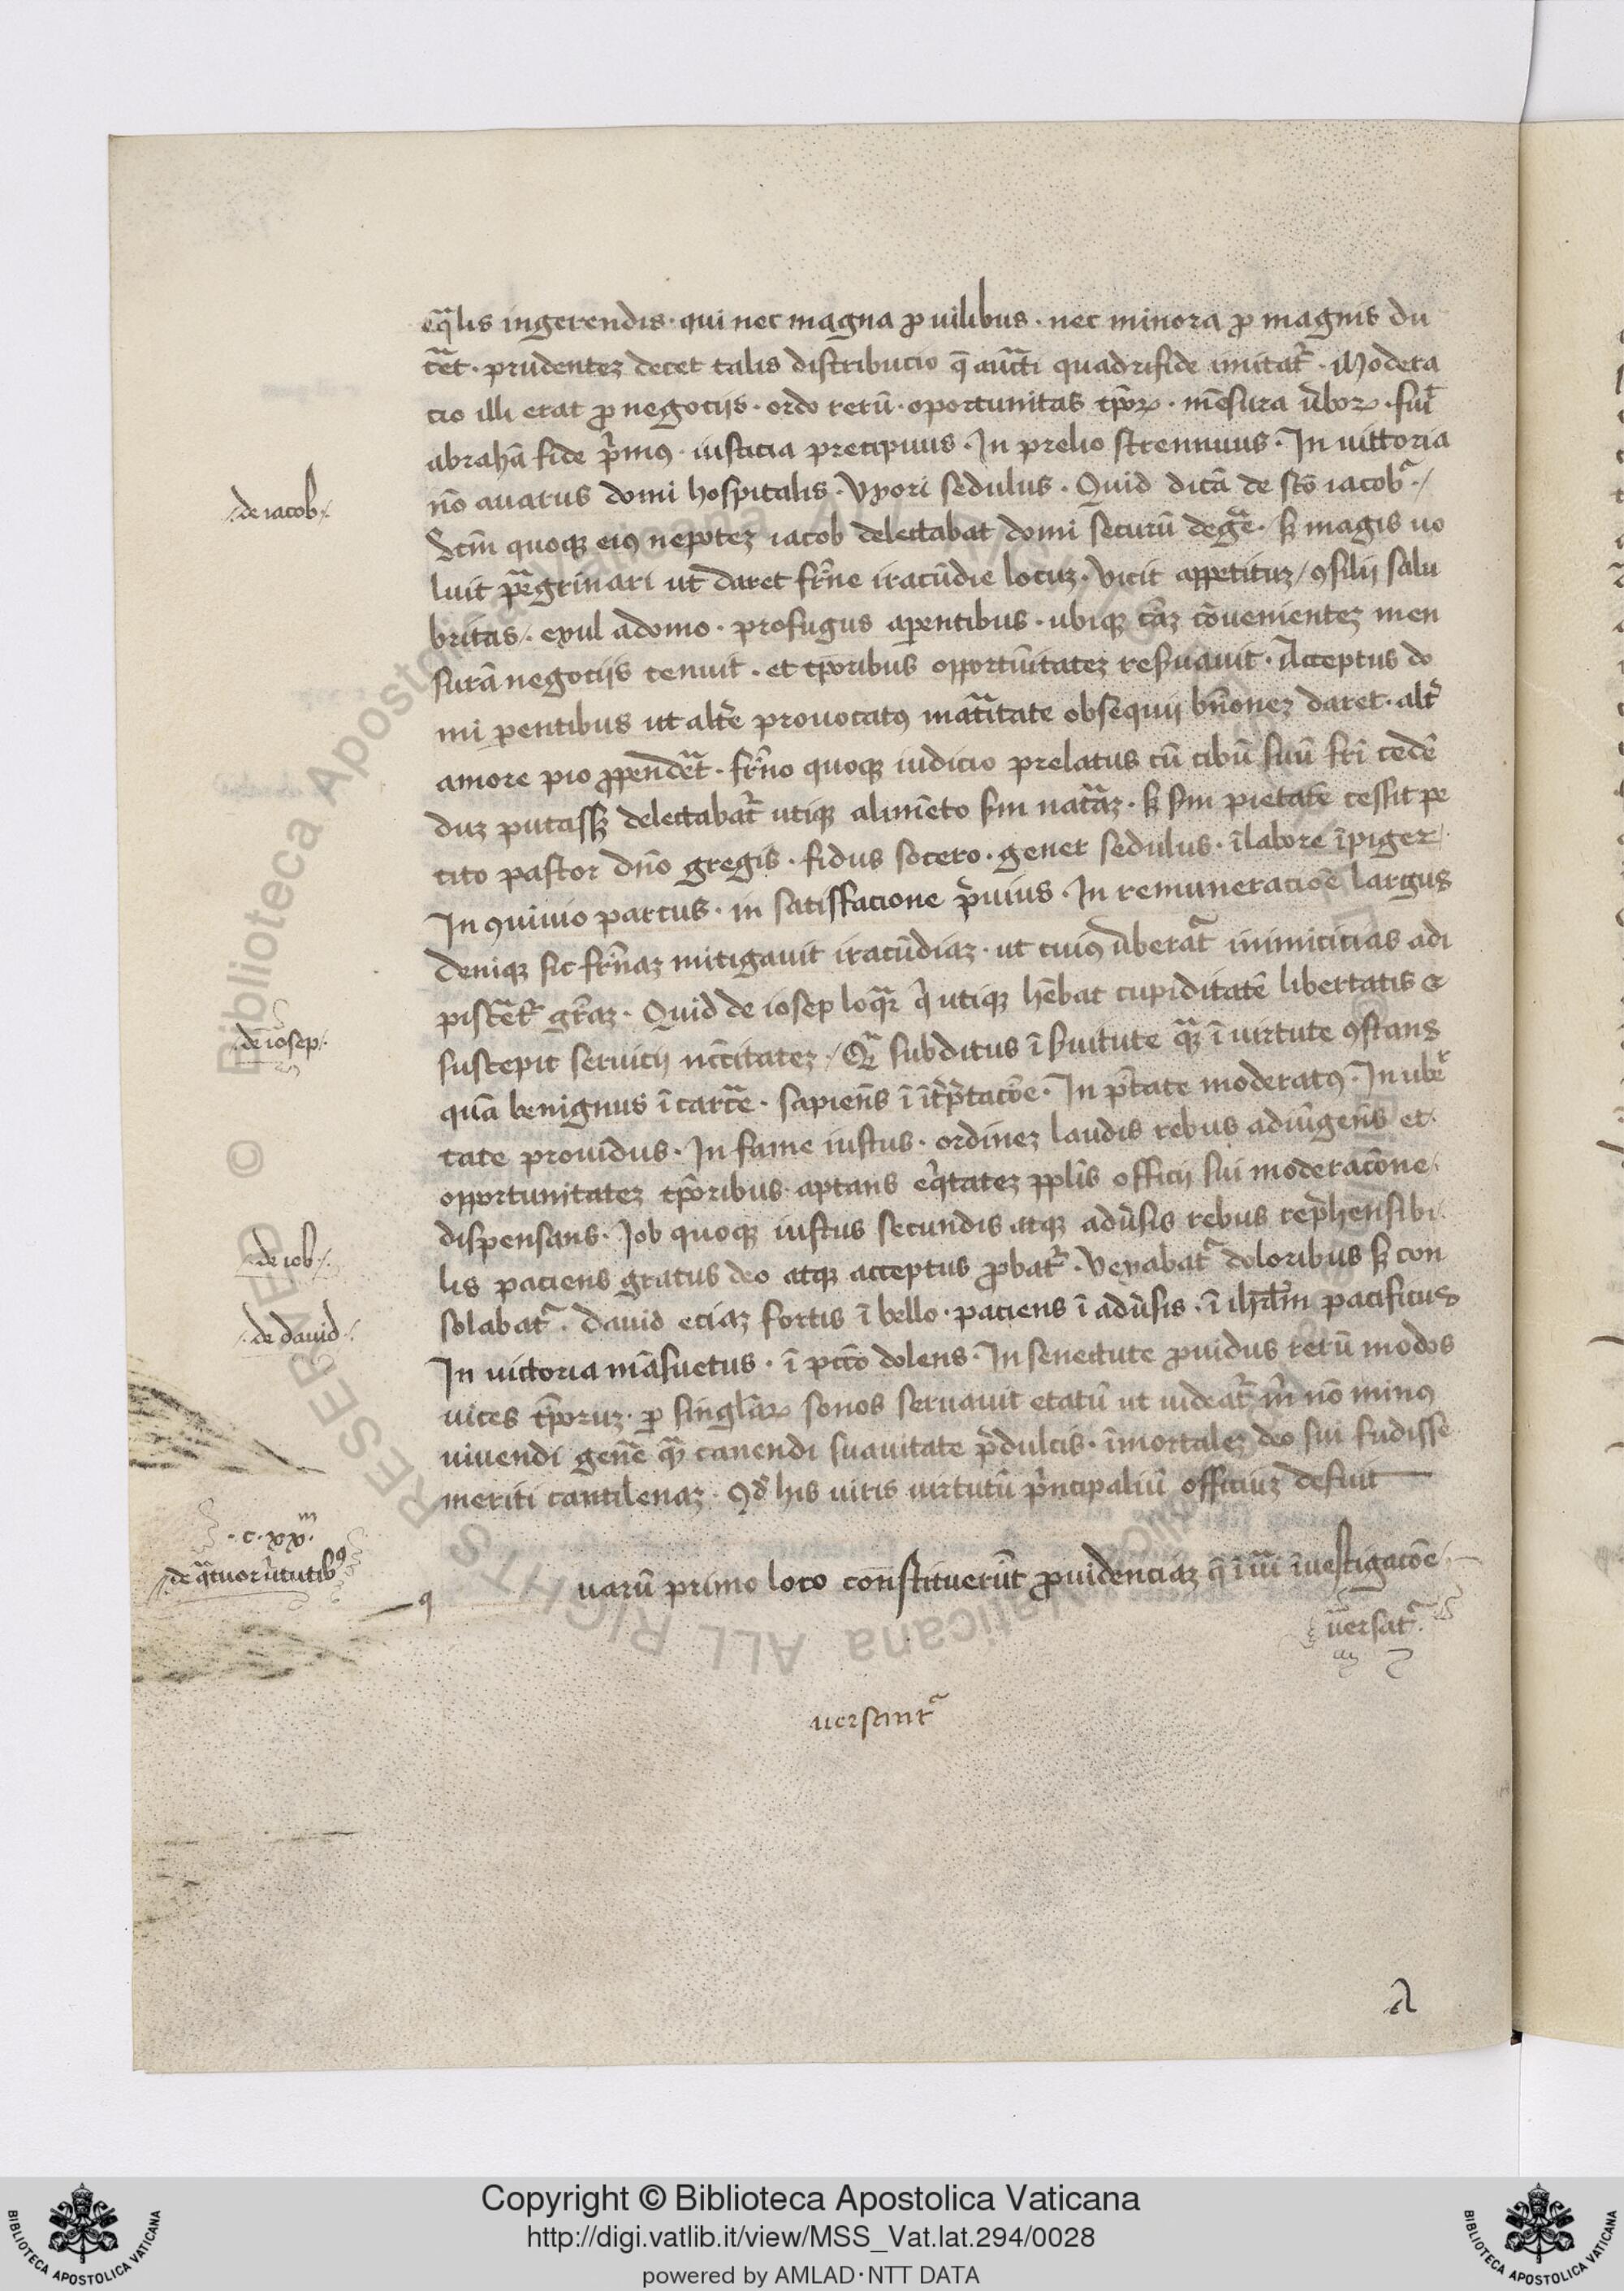 eq̄lis ingerendis · qui nec magna ꝓ uilibus · nec minora ꝓ magnis du
cāt · prudentez decet talis distribucio q̄ aūcti quadrifide imitat᷑ · Modera
cio illi erat ꝓ negocijs · ordo rerū · oportunitas tp̄oꝝ · mēsura v̄boꝝ · fuit
abrahā fide p̄mꝰ · iusticia precipuus · In prelio strennuus · In uittoria
nō auarus domi hospitalis · Vxori sedulus · Quid dicā de sc̄o iacob
·de iacob·
Sc̄m quoqꝫ eiꝰ nepotez iacob delectabat domi securū deḡe · sꝫ magis uo
luit p̄egrinari ut daret fr̄ne iracūdie locuz · Vicit appetituz / ꝯsilij salu
britas · exul adomo · profugus aꝑentibus · ubiqꝫ tn̄ cōuenientez men
surā negocijs tenuit · et tp̄oribus opportūitatez reſuauit · Acceptus do
mi ꝑentibus ut alt̄e prouocatꝰ mat̄itate obsequij bn̄onez daret · alt̄
amore pio ꝓpendēt · fr̄no quoqꝫ iudicio prelatus cū cibū suū fr̄i cedē
duz putassꝫ delectabat᷑ utiqꝫ alimēto sm̄ nat̄az · sꝫ sm̄ pietatē cessit pe
tito pastor dn̄o gregis · fidus socero · gener sedulus · ī labore īpiger
In ꝯuiuio parcus · in satisfacione p̄uius · In remuneracioē largus
deniqꝫ sic fr̄naz mitigauit iracūdiaz · ut cuiꝰ v̄berat᷑ inimicicias adi
pisc̄et᷑ gr̄az · Quid de iosep loq̄r q̄ utiqꝫ hēbat cupiditatē libertatis ⁊
·de iosep·
suscepit seruicij nc̄citatez / Q̄ subditus ī s̄uitute q̄ꝫ ī virtute ꝯstans
quā benignus ī carc̄e · sapiēs ī īt̄p̄tacōe · In p̄tate moderatꝰ · In ube
tate prouidus · In fame iustus · ordinez laudis rebus adiūgens et
opportunitatez tp̄oribus · aptans eq̄tatez ppl̄is officij sui moderacōne
dispensans · Job quoqꝫ iustus secundis atqꝫ adūsis rebus rep̄hensibi
·de iob·
lis paciens gratus deo atqꝫ acceptus ꝓbat᷑ · Vexabat᷑ doloribus sꝫ con
solabat᷑ · dauid eciaz fortis ī bello · paciens ī adūsis · ī ihrl̄m pacificus
·de dauid·
In uictoria māsuetus · ī pcc̄o dolens · In senectute ꝓuidus rerū modos
uices tp̄oruz · ꝑ singl̄aꝝ sonos seruauit etatū ut uideat᷑ m̄ nō minꝰ
uiuendi gen̄e q̄ꝫ canendi suauitate p̄dulcis · īmortalez deo sui fudisse
meriti cantilenaz · Qd̄ his uiris virtutū p̄ncipaliū officiuz defuit
·c·xx·m
de q̄tuor ūtutibꝰ
q
uarū primo loco constituerūt ꝓuidenciaz q̄ ī ūi īuestigacōe
uersat᷑
uersant᷑
Copyright © Biblioteca Apostolica Vaticana
http://digi.vatlib.it/view/MSS_Vat.lat.294/0028
powered by AMLAD·NTT DATA
BIBLIOTECA APOSTOLICA VATICANA
BIBLIOTECA APOSTOLICA VATICANA